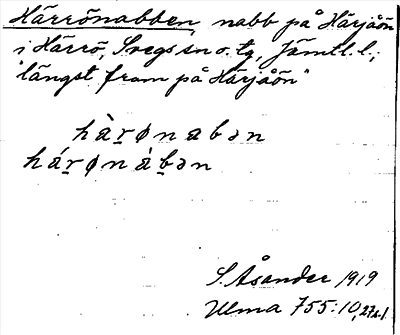 Härrönabben, nabb på Härjåön
i Härrö, Svegs sn o. tg, Jämtl. l.;
"längst fram på Härjåön"
hàr̠ønabən
hár̠ønàb̠ən
S. Åsander 1919
Ulma 755:10, 27a-1